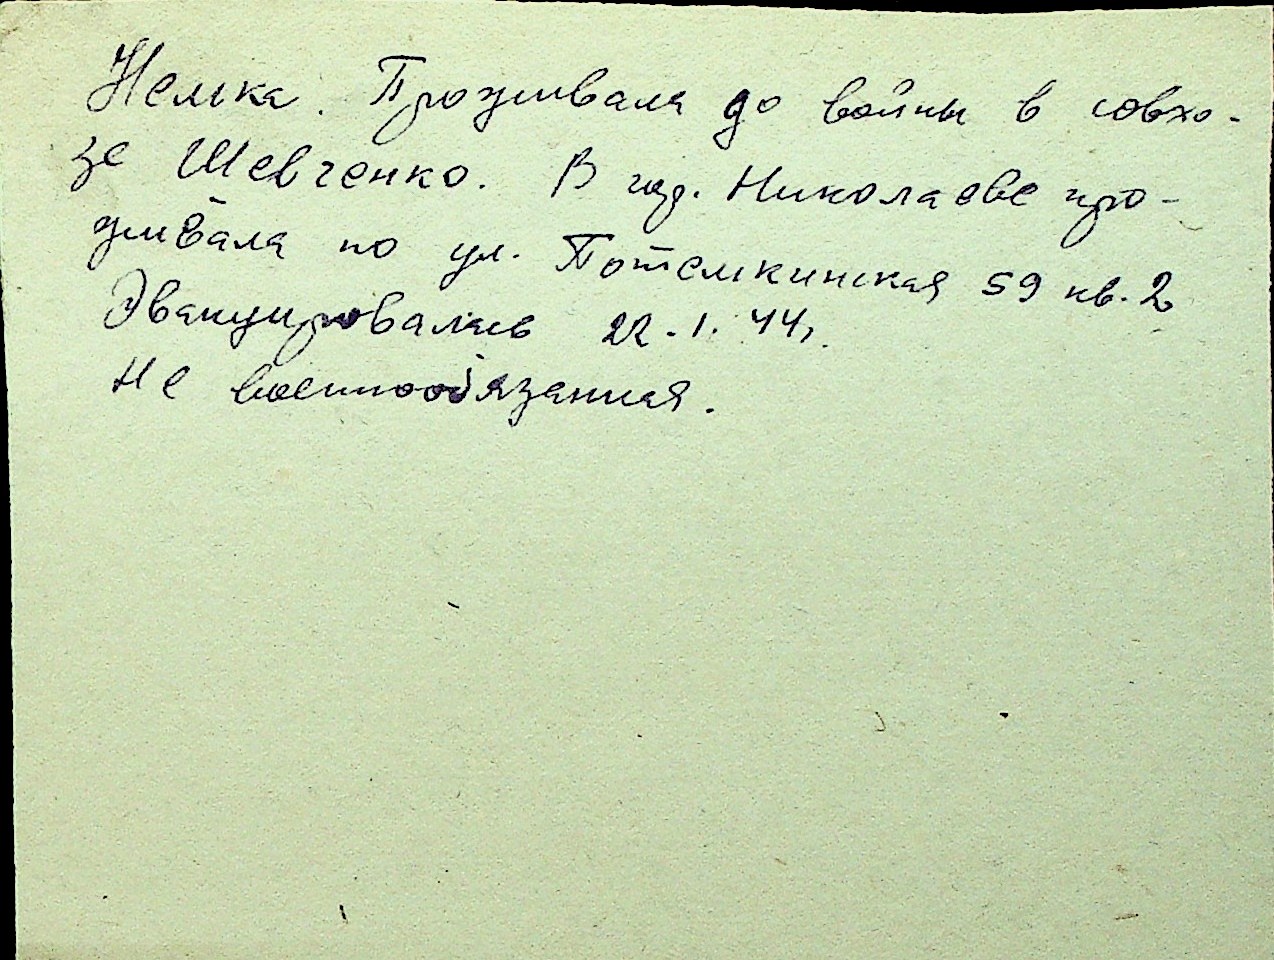 Немка. Проживала до войны в совхо-
зе Шевченко. В гор. Николаеве про-
живала по ул. Потемкинская 59 кв. 2
Эвакуировалась 22.1.44г.
Не военнообязанная.